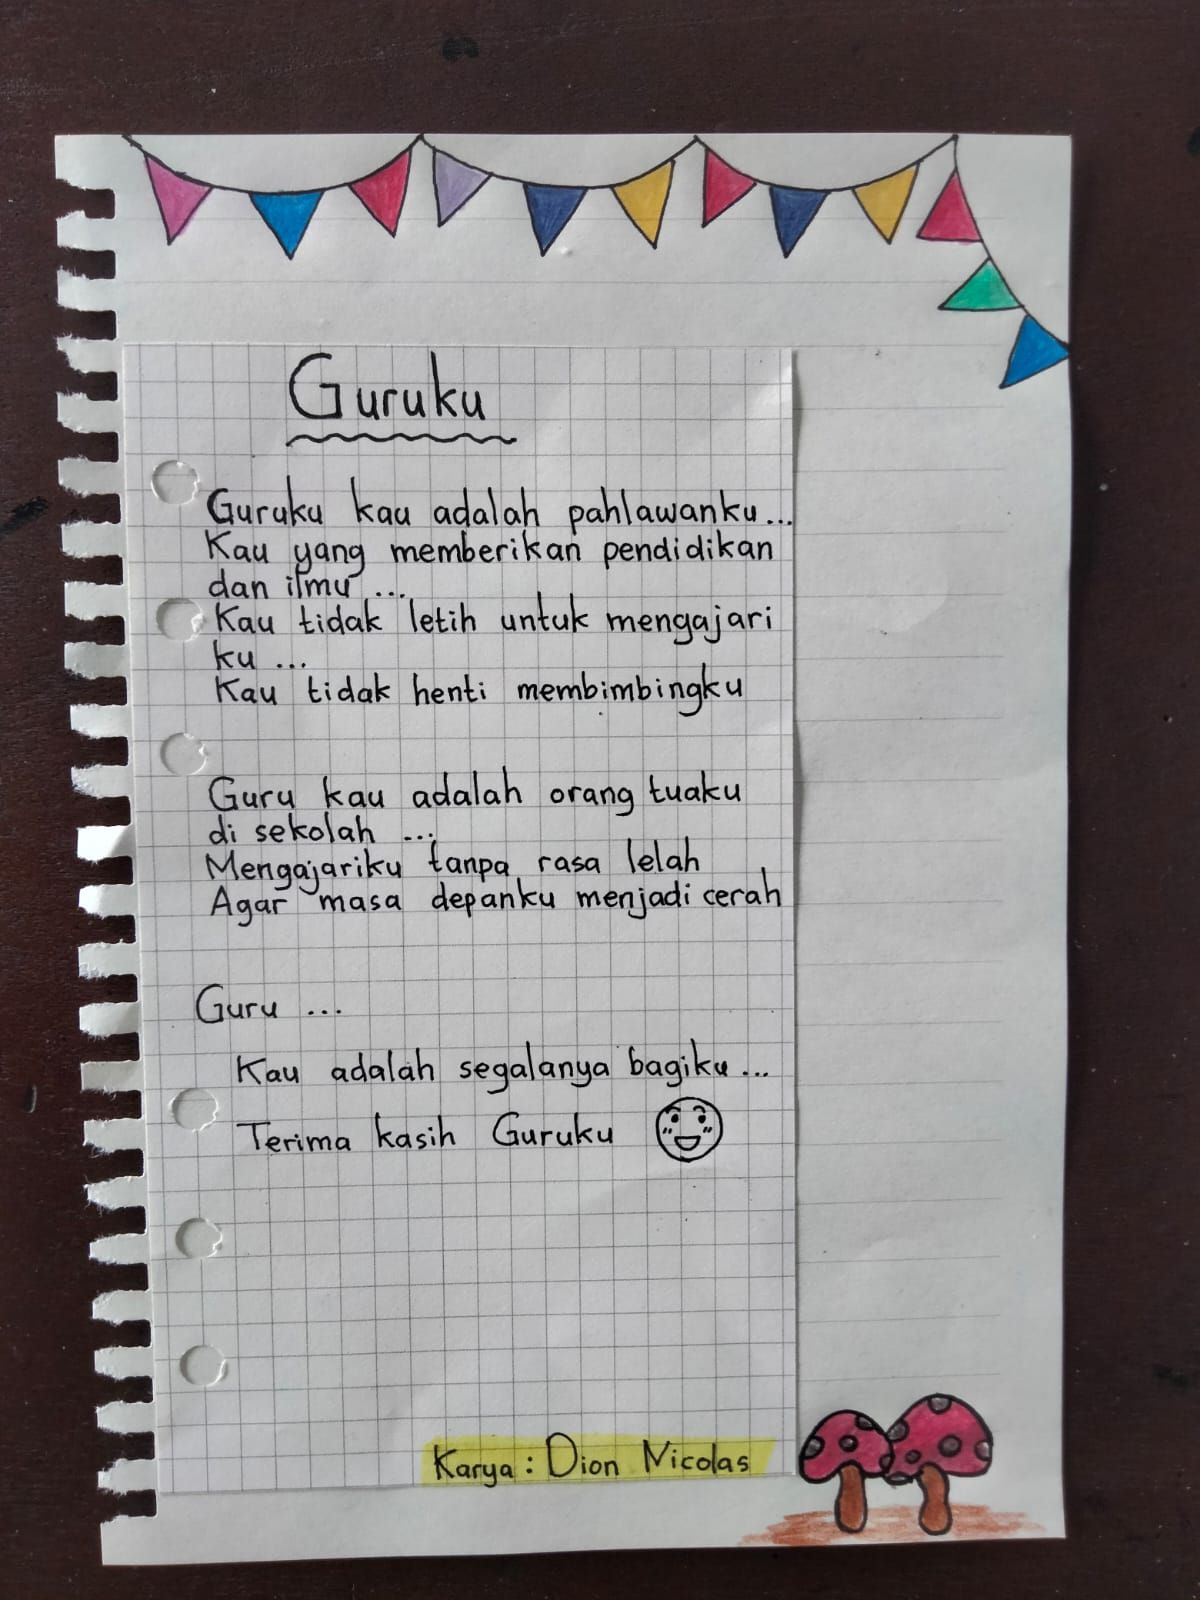 Guruku
Guruku kau adalah pahlawanku...
Kau yang memberikan pendidikan
dan ilmu ...
Kau tidak letih untuk mengajari
ku ...
Kau tidak henti membimbingku
Guru kau adalah orang tuaku
di sekolah ...
Mengajariku tanpa rasa lelah
Agar masa depanku menjadi cerah
Guru ...
Kau adalah segalanya bagiku...
Terima kasih Guruku
Karya : Dion Nicolas